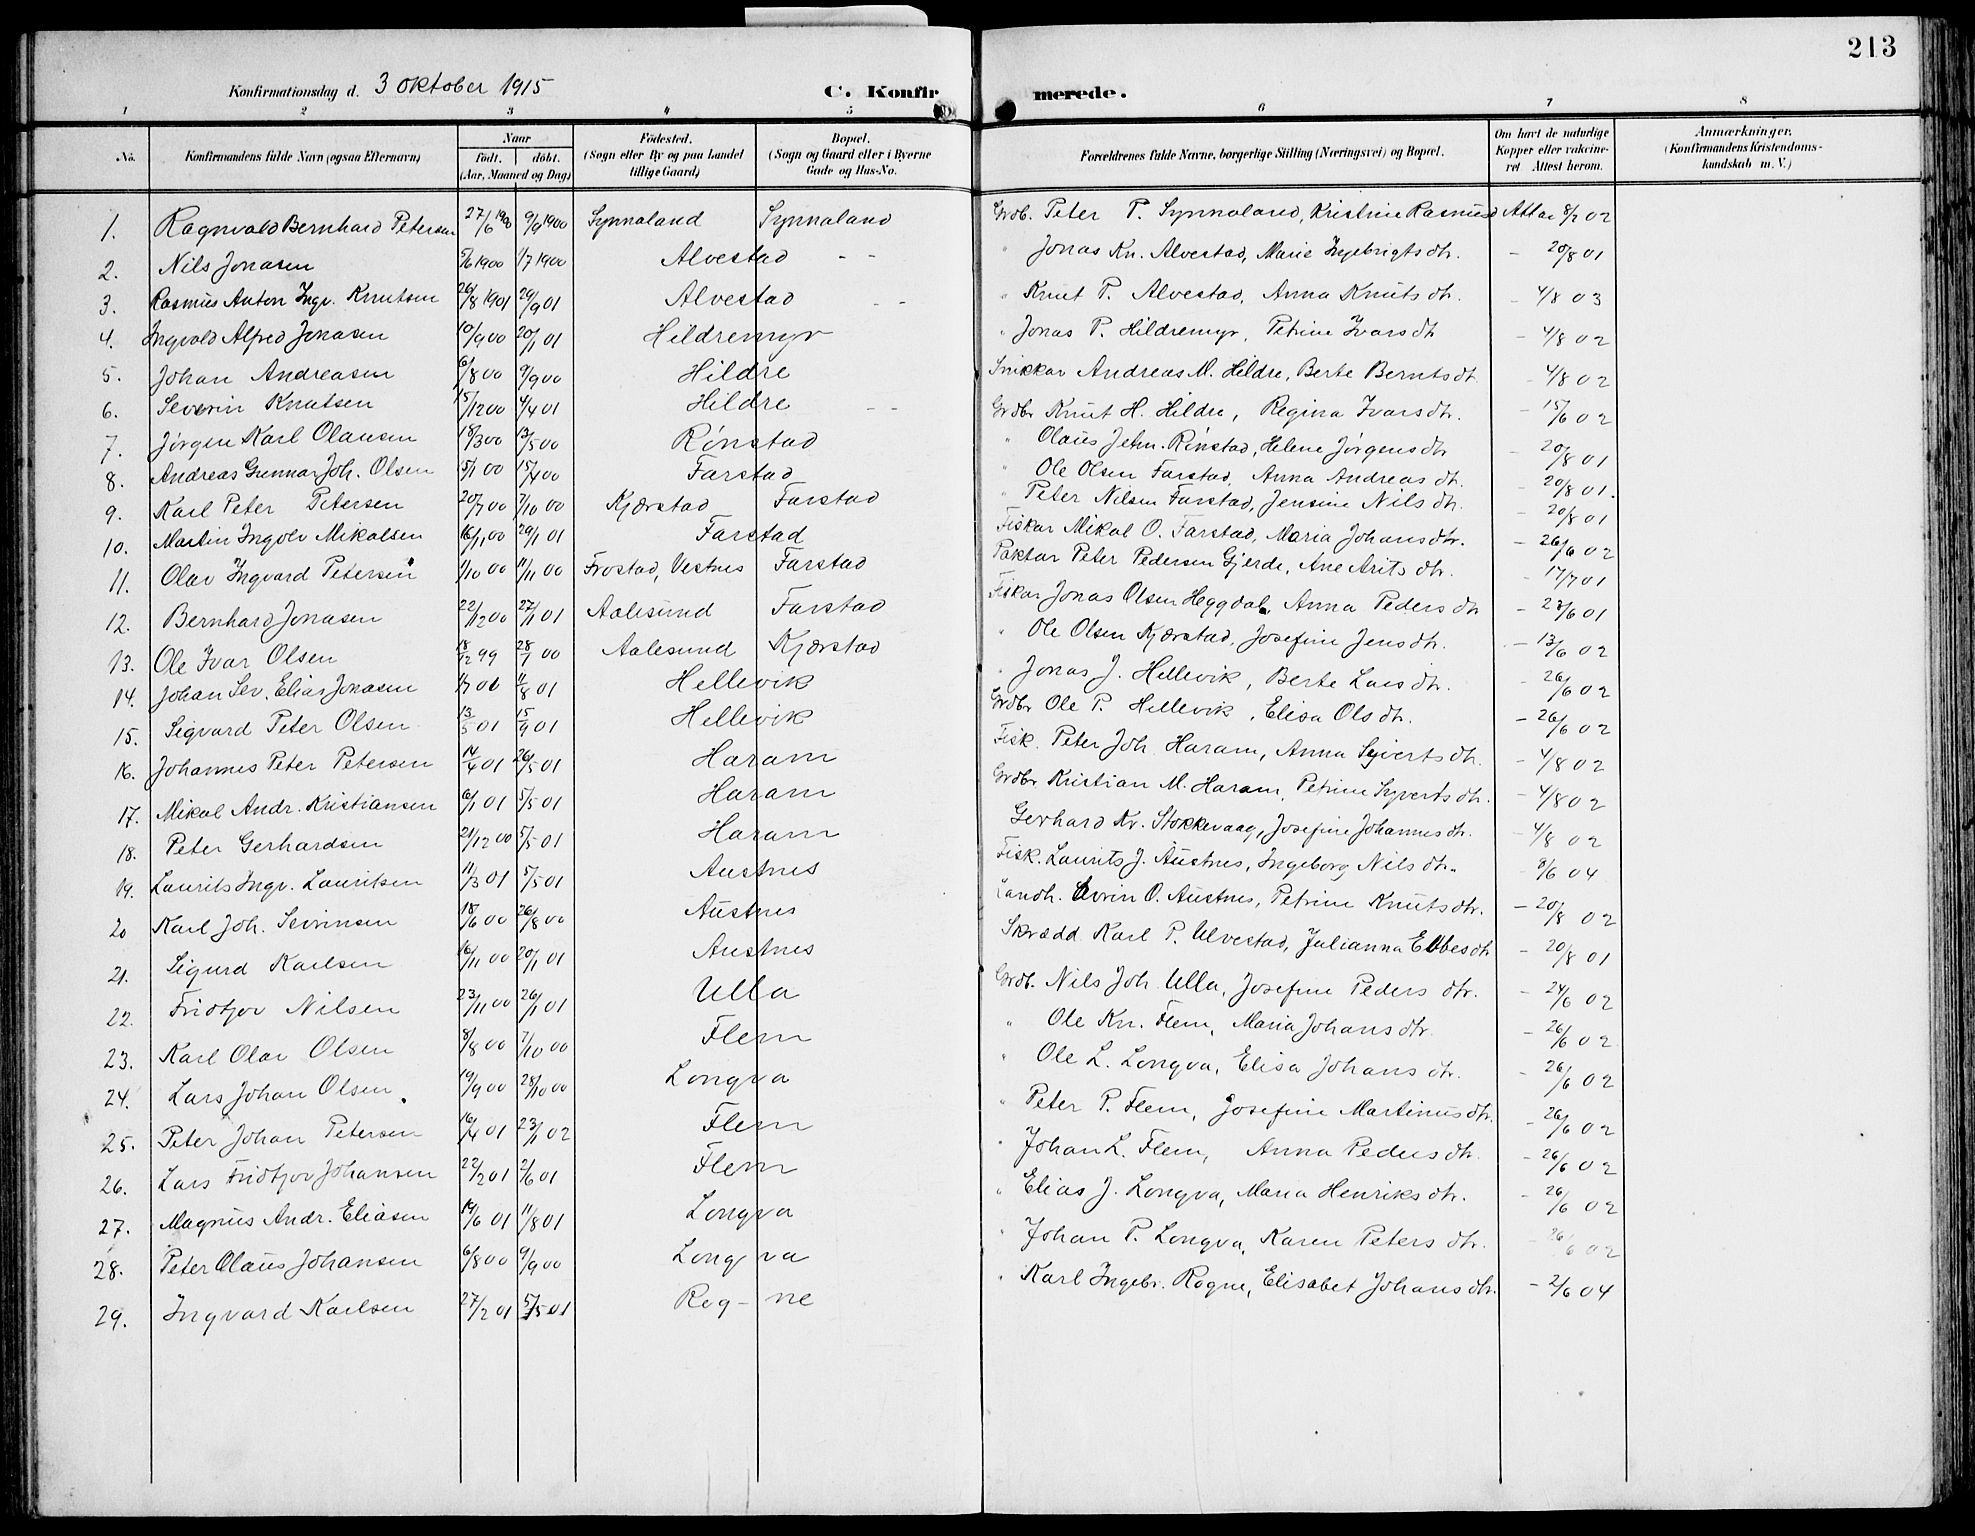 213
Konfirmationsdag d. 3 Oktober 1915 C. Konfir merede.
1 2 3 4 5 6 7 8
No. Konfirmandens fulde Navn (ogsaa Efternavn) Naar født. døbt. (Aar, Maaned og Dag) Fødested. (Sogn eller By og paa Landet tillige Gaard) Bopæl. (Sogn og Gaard eller i Byerne Gade og Hus-No. Forældrenes fulde Navne, borgerlige Stilling (Næringsvei) og Bopæl. Om havt de naturlige Kopper eller vakcineret Attest herom. Anmærkninger. (Konfirmandens Kristendomskundskab m. V.)
1. Ragnvald Bernhard Petersen 27/6 1900 9/9 1900 Synnaland Synnaland Grdb. Peter P. Synnaland, Kristine Rasmusd Attae 8/7 02
2. Nils Jonasen 5/6 1900 1/7 1900 Alvestad - - " Jonas Kn. Alvestad, Marie Ingebrigts dtr. - 20/8 01
3. Rasmus Anton Ingv. Knutsen 26/8 1901 29/9 01 Alvestad - - " Knut P. Alvestad, Anna Knuts dtr. - 4/8 03
4. Ingvald Alfred Jonasen 10/9 00 20/1 01 Hildremyr " Jonas P. Hildremyr, Petrine Ivars dtr - 4/8 02
5. Johan Andreasen 6/8 00 9/9 00 Hildre Snikkar Andreas M. Hildre, Berte Bernts dtr. - 4/8 02
6. Severin Knutsen 15/12 00 4/4 01 Hildre - - Grdbr Knut H. Hildre, Regina Ivars dtr. - 15/6 02
7. Jørgen Karl Olausen 18/3 00 13/5 00 Rønstad " Olaus Jehn. Rønstad, Helene Jørgens dtr - 20/8 01
8. Andreas Gunnar Joh. Olsen 5/1 00 15/4 00 Farstad " Ole Olsen Farstad, Anna Andreas dtr. - 20/8 01.
9. Karl Peter Petersen 20/7 00 7/10 00 Kjærstad Farstad " Peter Nilsen Farstad, Jensine Nils dtr. - 20/8 01
10. Martin Ingolv Mikalsen 16/11 00 29/1 01 Farstad Fiskar Mikal O. Farstad, Maria Johans dtr. - 26/6 02
11. Olav Ingvard Petersen 1/10 00 11/11 00 Frostad, Vestnes Farstad Paktar Peter Pedersen Gjerde, Ane Arits dtr. - 17/7 01
12. Bernhard Jonasen 22/12 00 27/1 01 Aalesund Farstad Fiskar Jonas Olsen Heggdal, Anna Peders dtr - 27/6 01
13. Ole Ivar Olsen 18/12 99 28/1 00 Aalesund Kjærstad " Ole Olsen Kjærstad, Josefine Jens dtr. - 13/6 02
14. Johan Sev. Elias Jonasen 1/7 01 11/8 01 Hellevik " Jonas J. Hellevik, Berte Lars dtr. - 26/6 02
15. Sigvard Peter Olsen 13/5 01 15/9 01 Hellevik Grdbr Ole P. Hellevik, Elisa Ols dtr. - 26/6 02
16. Johannes Peter Petersen 14/4 01 26/5 01 Haram Fisk. Peter Joh. Haram, Anna Syverts dtr. - 4/8 02
17. Mikal Andr. Kristiansen 6/1 01 5/5 01 Haram Grdbr. Kristian M. Haram, Petrine Syverts dtr. - 4/8 02
18. Peter Gerhardsen 21/12 00 5/5 01 Haram Gerhard Kr. Stokkevaag, Josefine Johannes dtr. - 4/8 02
19. Laurits Ingv. Lauritsen 11/3 01 5/5 01 Austnes Fisk. Laurits J. Austnes, Ingeborg Nils dtr. - 8/6 04
20 Karl Joh. Sevrinsen 18/6 00 26/8 00 Austnes Landh. Sevrin O. Austnes, Petrine Knuts dtr. - 20/8 02
21. Sigurd Karlsen 16/11 00 20/1 01 Austnes Skrædd Karl P. Ulvestad, Julianna Ebbes dtr - 20/8 01
22. Fridtjov Nilsen 23/11 00 26/1 01 Ulla Grdb. Nils Joh. Ulla, Josefine Peders dtr. - 24/6 02
23. Karl Olav Olsen 8/8 00 7/10 00 Flem " Ole Kn. Flem, Maria Johans dtr. - 26/6 02
24. Lars Johan Olsen 19/9 00 28/10 00 Longva " Ole L. Longva, Elisa Johans dtr. - 26/6 02
25. Peter Johan Petersen 16/4 01 23/1 02 Flem " Peter P. Flem, Josefine Martinus dtr. - 26/6 02
26. Lars Fridtjov Johansen 22/2 01 2/6 01 Flem " Johan L. Flem, Anna Peders dtr. - 26/6 02
27. Magnus Andr. Eliasen 19/6 01 11/8 01 Longva " Elias J. Longva, Maria Henriks dtr. - 26/6 02
28. Peter Olaus Johansen 6/8 00 9/9 00 Longva " Johan P. Longva, Karen Peters dtr. - 26/6 02
29. Ingvard Karlsen 27/2 01 5/5 01 Rog - ne " Karl Ingebr. Rogne, Elisabet Johans dtr. - 2/6 04